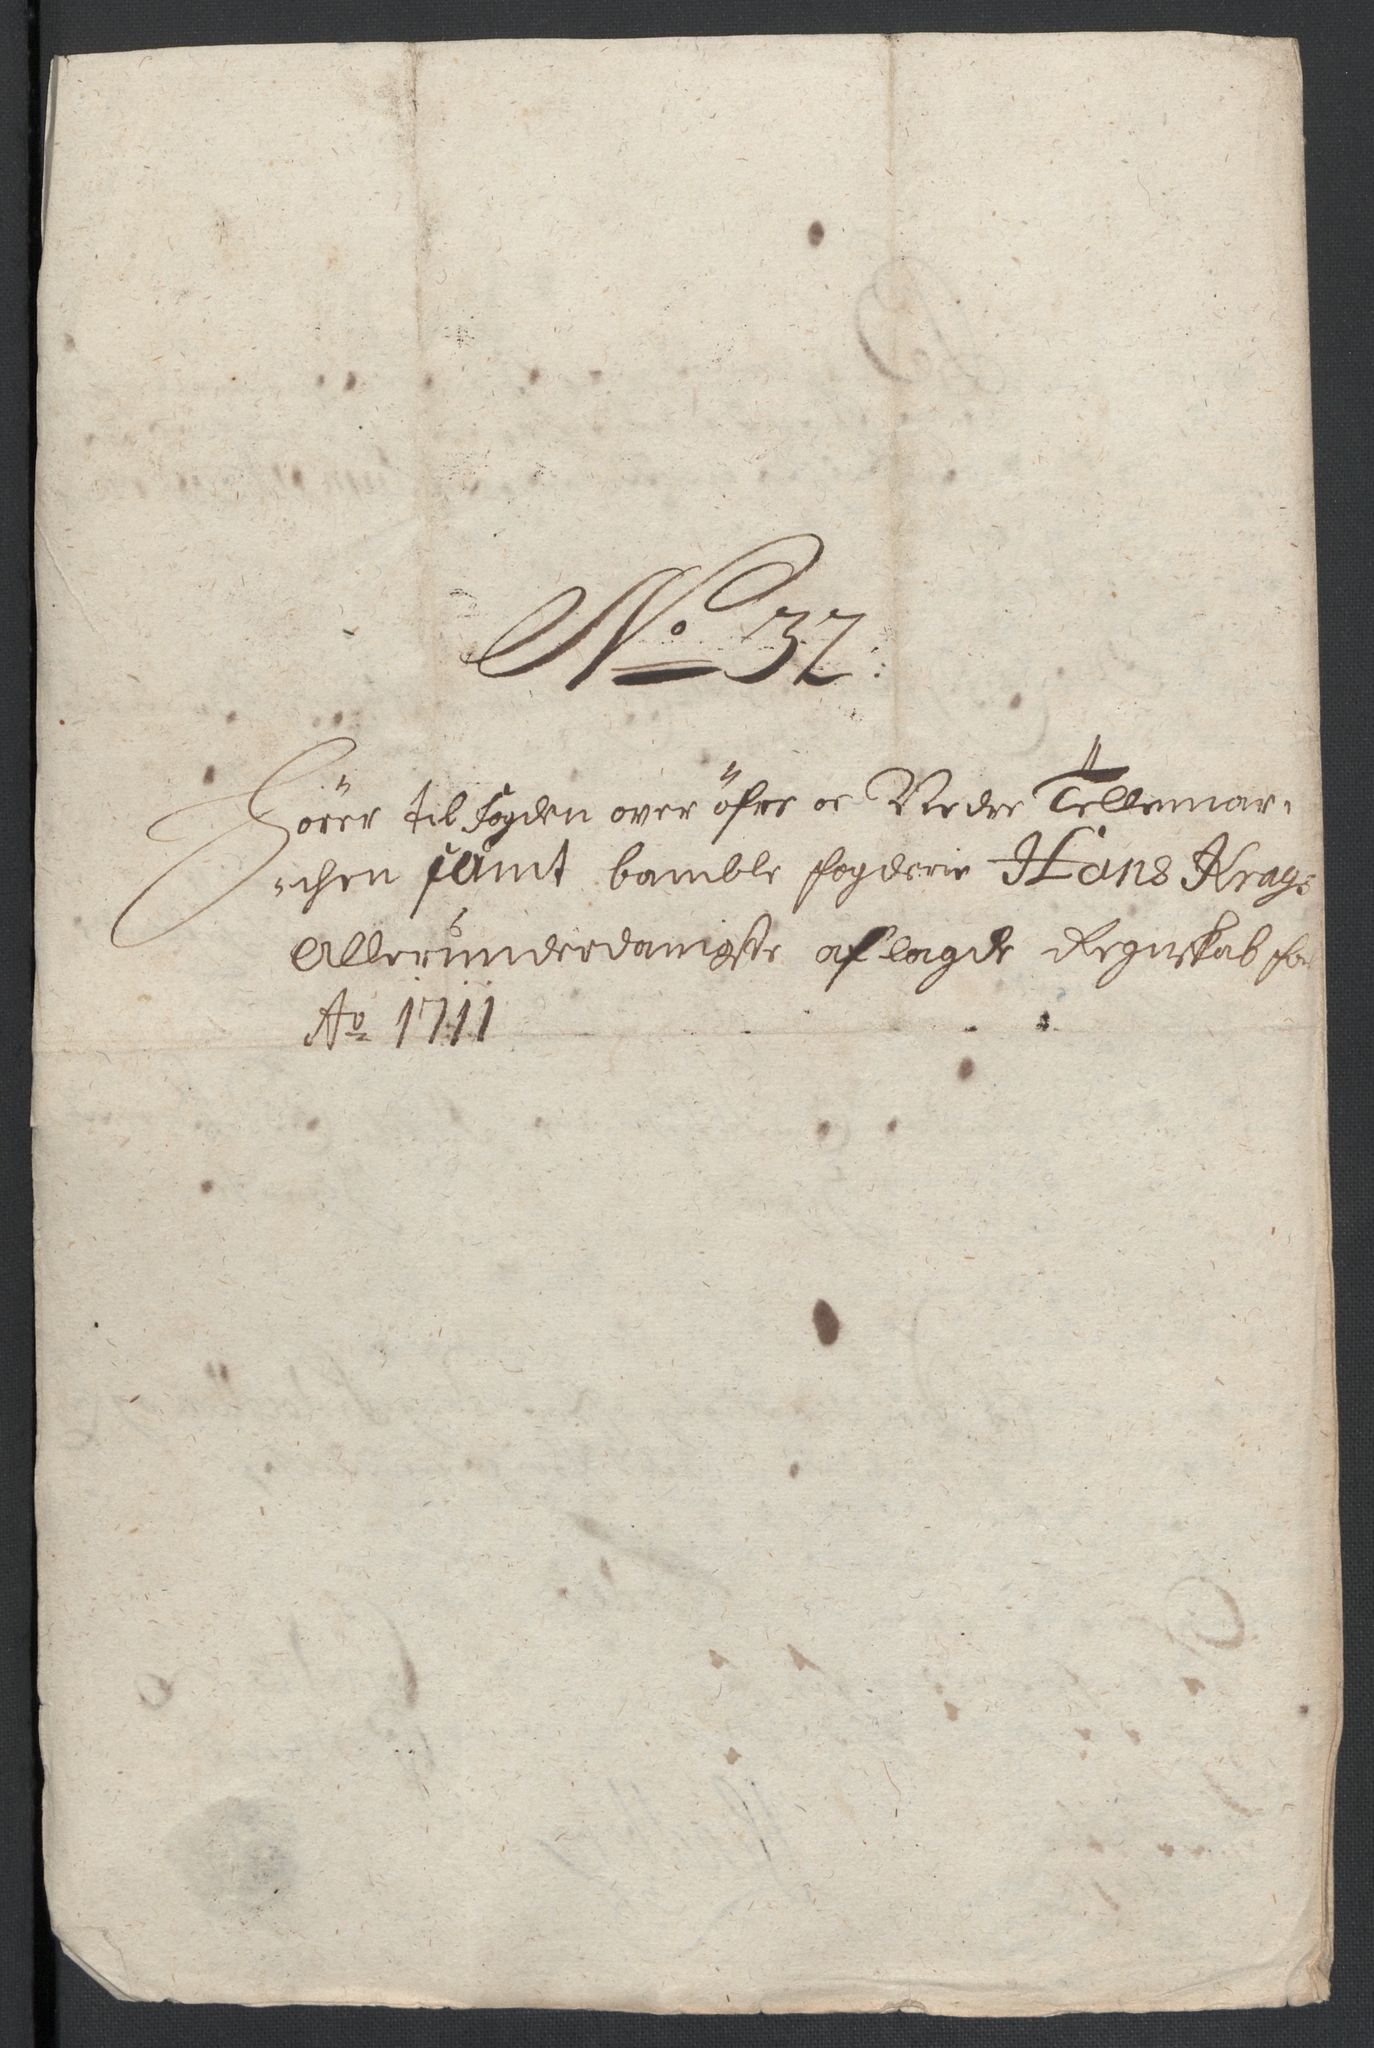 No 32:
Hörer til Fogden over öfre oc Nedre Tellemar-
-chen samt bamble fogderie Hans Krags
Allerunderdanigste aflagde Regnskab for
Ao 1711